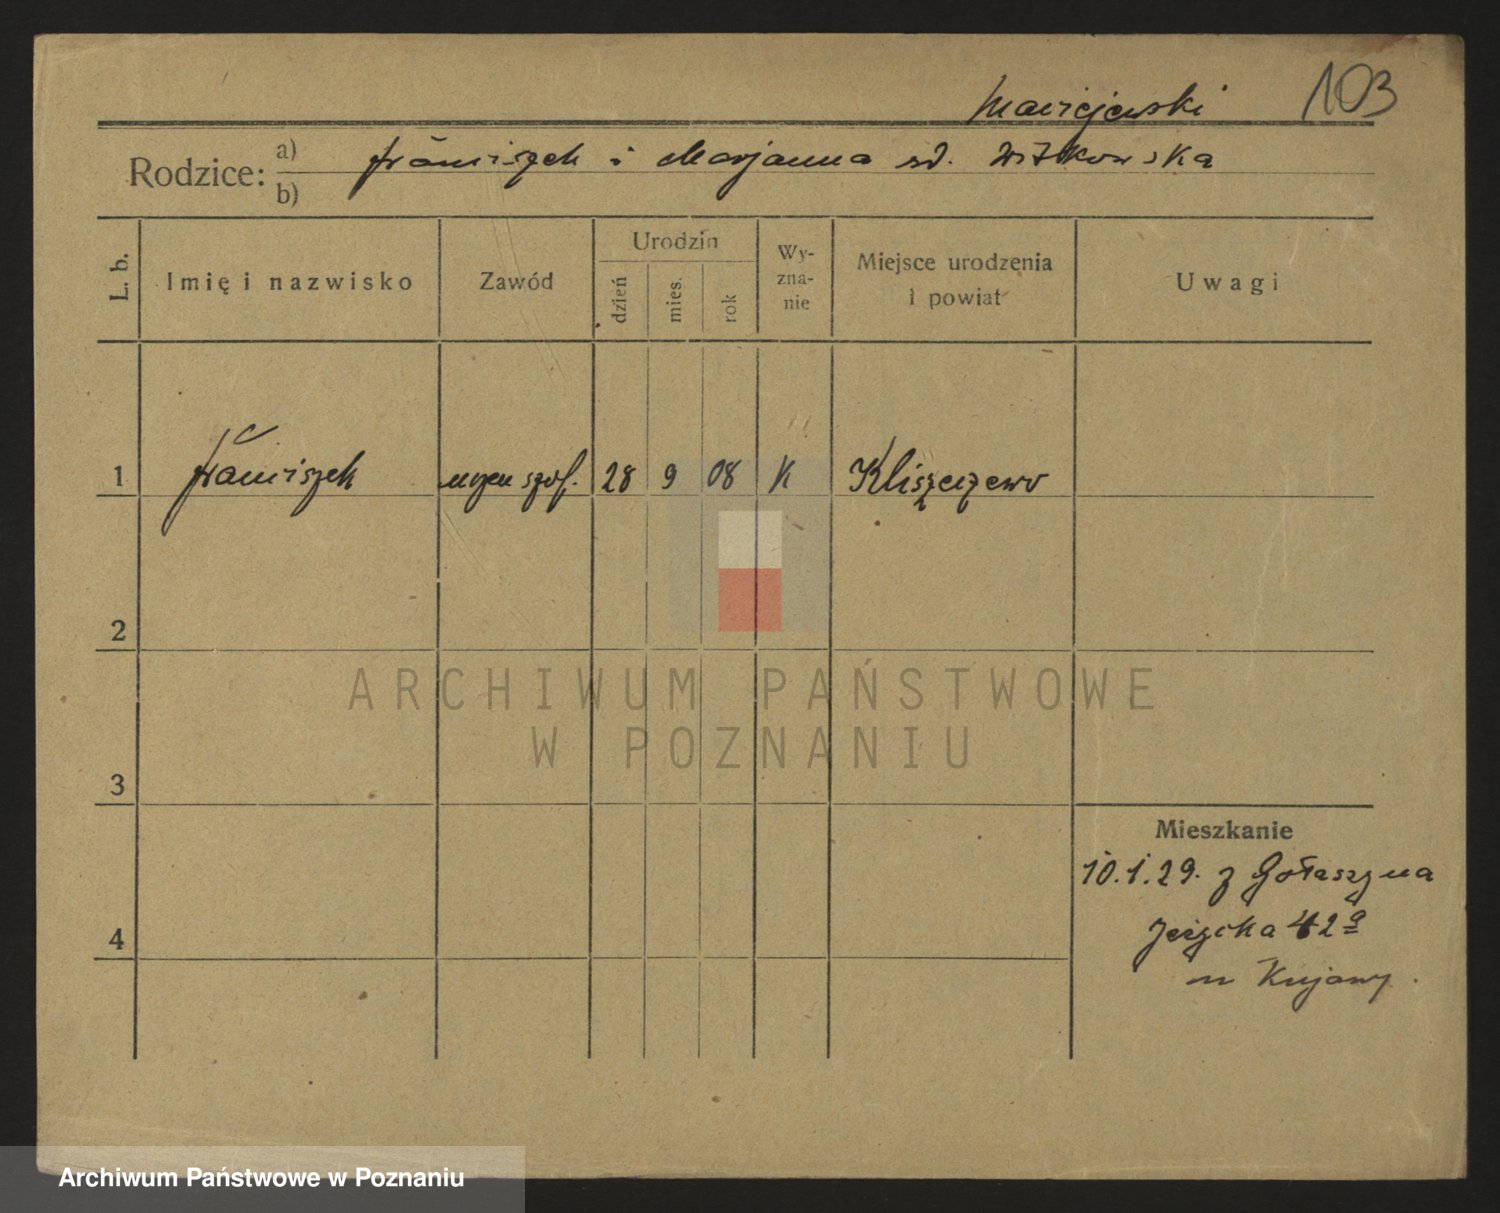 Maciejewski 103
Rodzice: a) Franciszek i Marjanna Witkowska
b)
L. b. Imię i nazwisko Zawód Urodzin dzień mies. rok Wyznanie Miejsce urodzenia i powiat Uwagi
1 Franciszek uczeń szof. 28 9 08 K
2
3
4
Mieszkanie
10.1.29. z Gołaszyna
42a
Kujawy
ARCHIWUM PAŃSTWOWE
W POZNANIU
Archiwum Państwowe w Poznaniu